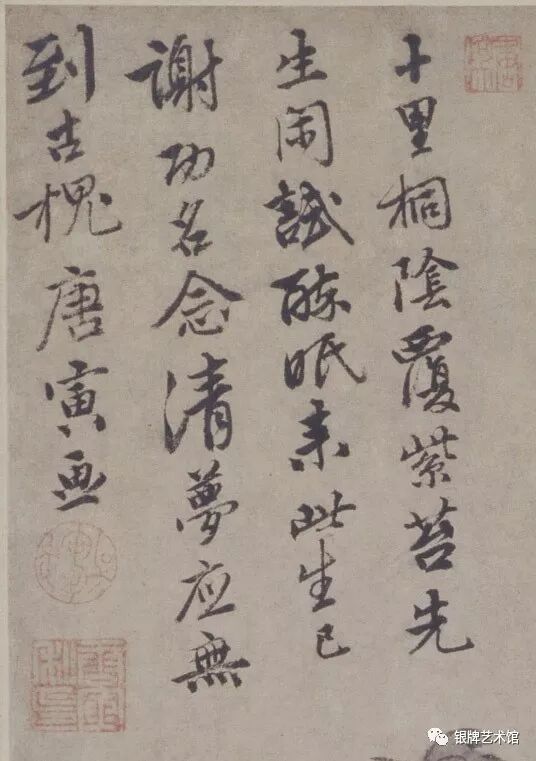 十里桐陰覆紫苔先
生閑試醉眠来此生已
謝功名念清夢应無
到古槐唐寅画
银牌艺术馆